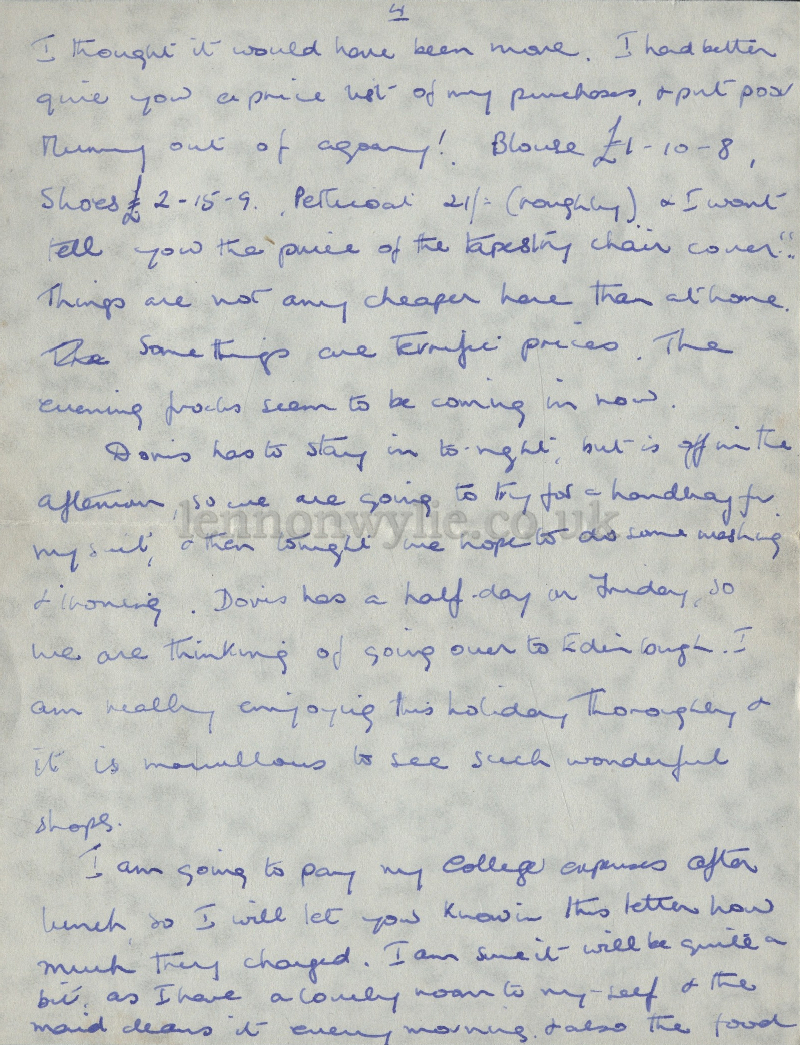 4
I thought it would have been more. I had better
give you a price list of my purchases, & put poor
Mummy out of agony! Blouse £1-10-8,
Shoes £ 2-15-9. Petticoat 21/- (roughly) & I won't
tell you the price of the tapestry chair cover!!.
Things are not any cheaper here than at home.
The Some things are terrific prices. The
evening frocks seem to be coming in now.
Doris has to stay in to-night, but is off in the
afternoon, so we are going to try for a handbag for
my suit, & then tonight we hope to do some washing
& ironing. Doris has a half-day on Friday, so
we are thinking of going over to Edinburgh. I
am really enjoying this holiday thoroughly &
it is marvellous to see such wonderful
shops.
I am going to pay my College expenses after
lunch so I will let you know in this letter how
much they charged. I am sure it will be quite a
bit, as I have a lovely room to my-self & the
maid cleans it every morning. & also the food
lennonwylie.co.uk